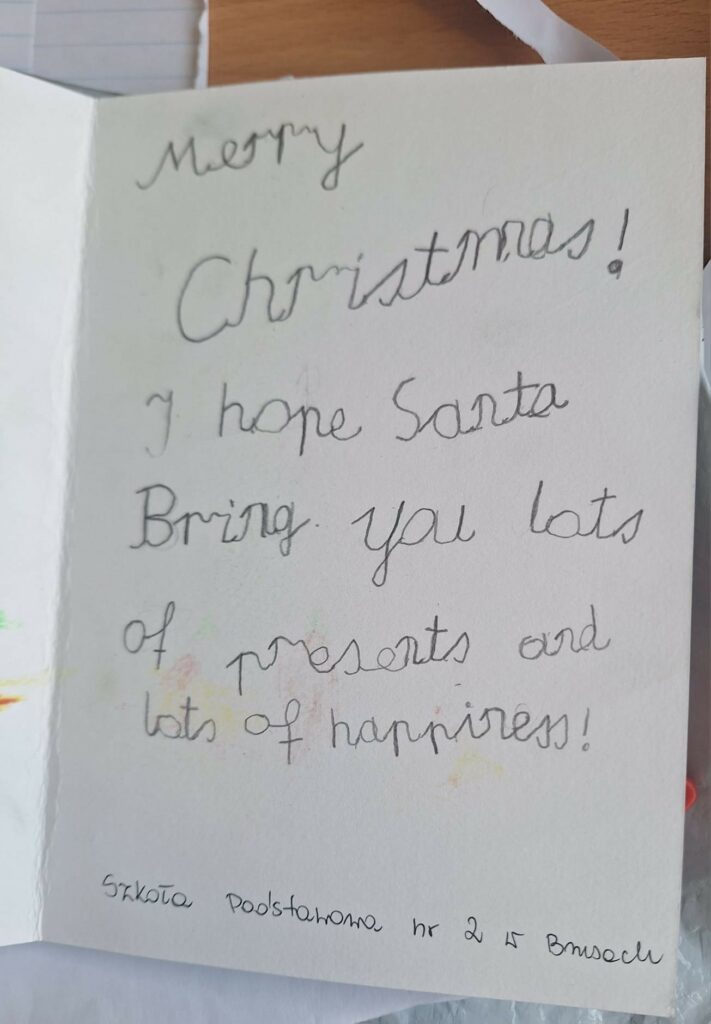 Merry
Christmas!
I hope Santa
Bring you lots
of presents and
lots of happiness!
Szkoła Podstawowa nr 2 w Brusach